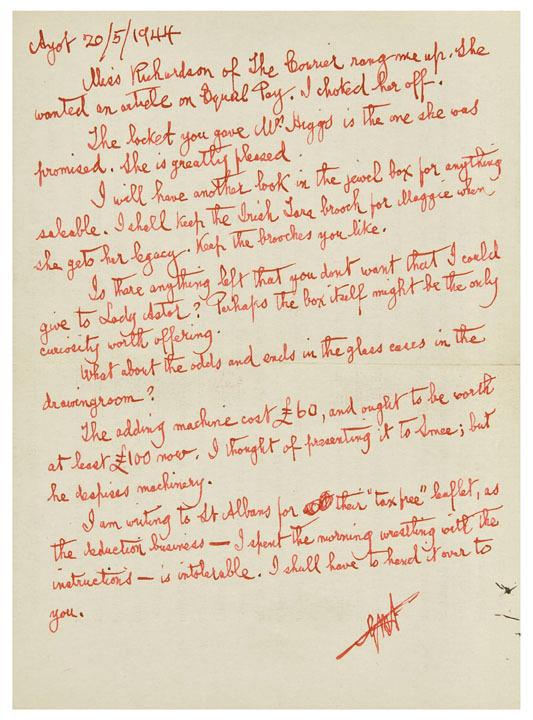 Ayot 20/5/1944
Miss Richardson of The Courier rang me up. She
wanted an article on Equal Pay. I choked her off.
The locket you gave Mrs Higgs is the one she was
promised. She is greatly pleased.
I will have another look in the jewel box for anything
saleable. I shall keep the Irish Tara brooch for Maggie when
she gets her legacy. Keep the brooches you like.
Is there anything left that you dont want that I could
give to Lady Astor? Perhaps the box itself might be the only
curiosity worth offering.
What about the odds and ends in the glass cases in the
drawingroom?
The adding machine cost £60, and ought to be worth
at least £100 now. I thought of presenting it to Smee; but
he despises machinery.
I am writing to St Albans for their "tax free" leaflet, as
the deduction business — I spent the morning wrestling with the
instructions — is intolerable. I shall have to hand it over to
you.